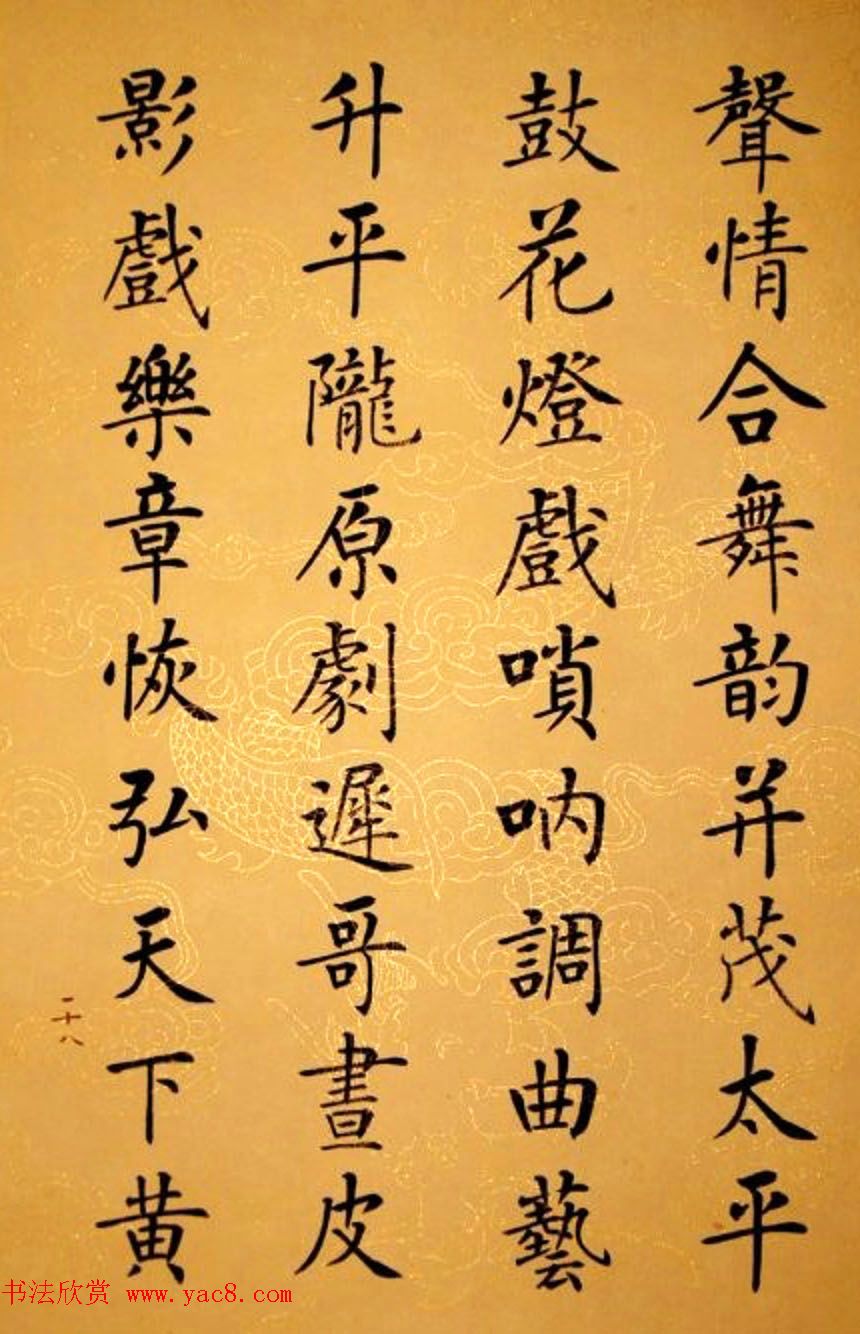 聲情合舞韵并茂太平
鼓花燈戲嗩吶調曲藝
升平隴原劇遲哥晝皮
影戲樂章恢弘天下黄
二十八
书法欣赏 www.yac8.com